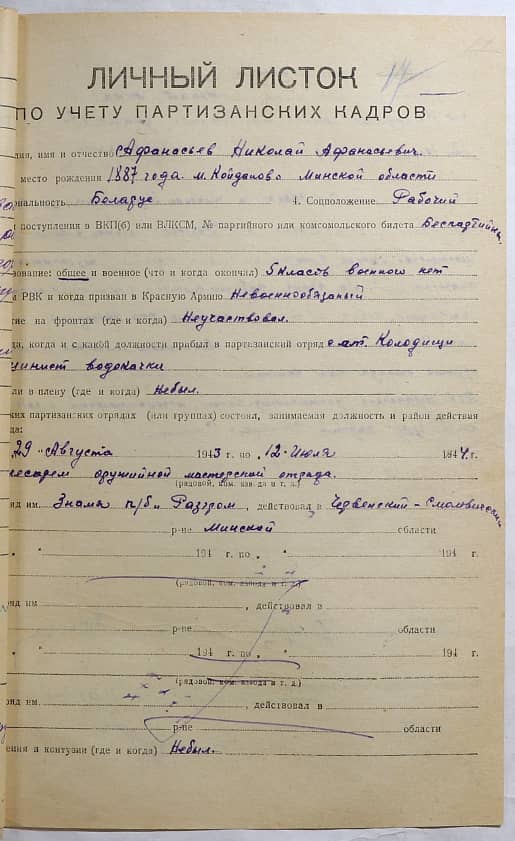 14
ЛИЧНЫЙ ЛИСТОК
ПО УЧЕТУ ПАРТИЗАНСКИХ КАДРОВ
илия, имя и отчество Афанасьев Николай Афанасьевич.
место рождения 1887 года. м. Койданово Минской области
ональность Беларус 4. Соцположение Рабочий
поступления в ВКП(б) или ВЛКСМ, № партийного или комсомольского билета Беспартийный
зование: общее и военное (что и когда окончил) 5 класть военного нет
РВК и когда призван в Красную Армию Невоеннообязаный
ие на фронтах (где и когда) Неучаствовал.
да, когда и с какой должности прибыл в партизанский отряд с ст. Колодищи
шинист водокачки
ли в плену (где и когда) Небыл.
ких партизанских отрядах (или группах) состоял, занимаемая должность и район действия
да:
29 " Августа 1943 г. по 12 " Июля 1944 г.
лесарем оружийной мастерской отряда.
(рядовой, ком. взвода и т. д.)
яд им. Знамя п/б „Разгром", действовал в Червенский-Смолевический
р-не Минской области
" " 194 г. по " " 194 г.
(рядовой, ком. взвода и т. д.)
яд им , действовал в
р-не области
" " 194 г. по " " 194 г.
(рядовой, ком. взвода и т. д.)
яд им. , действовал в
р-не области
ения и контузии (где и когда) Небыл.